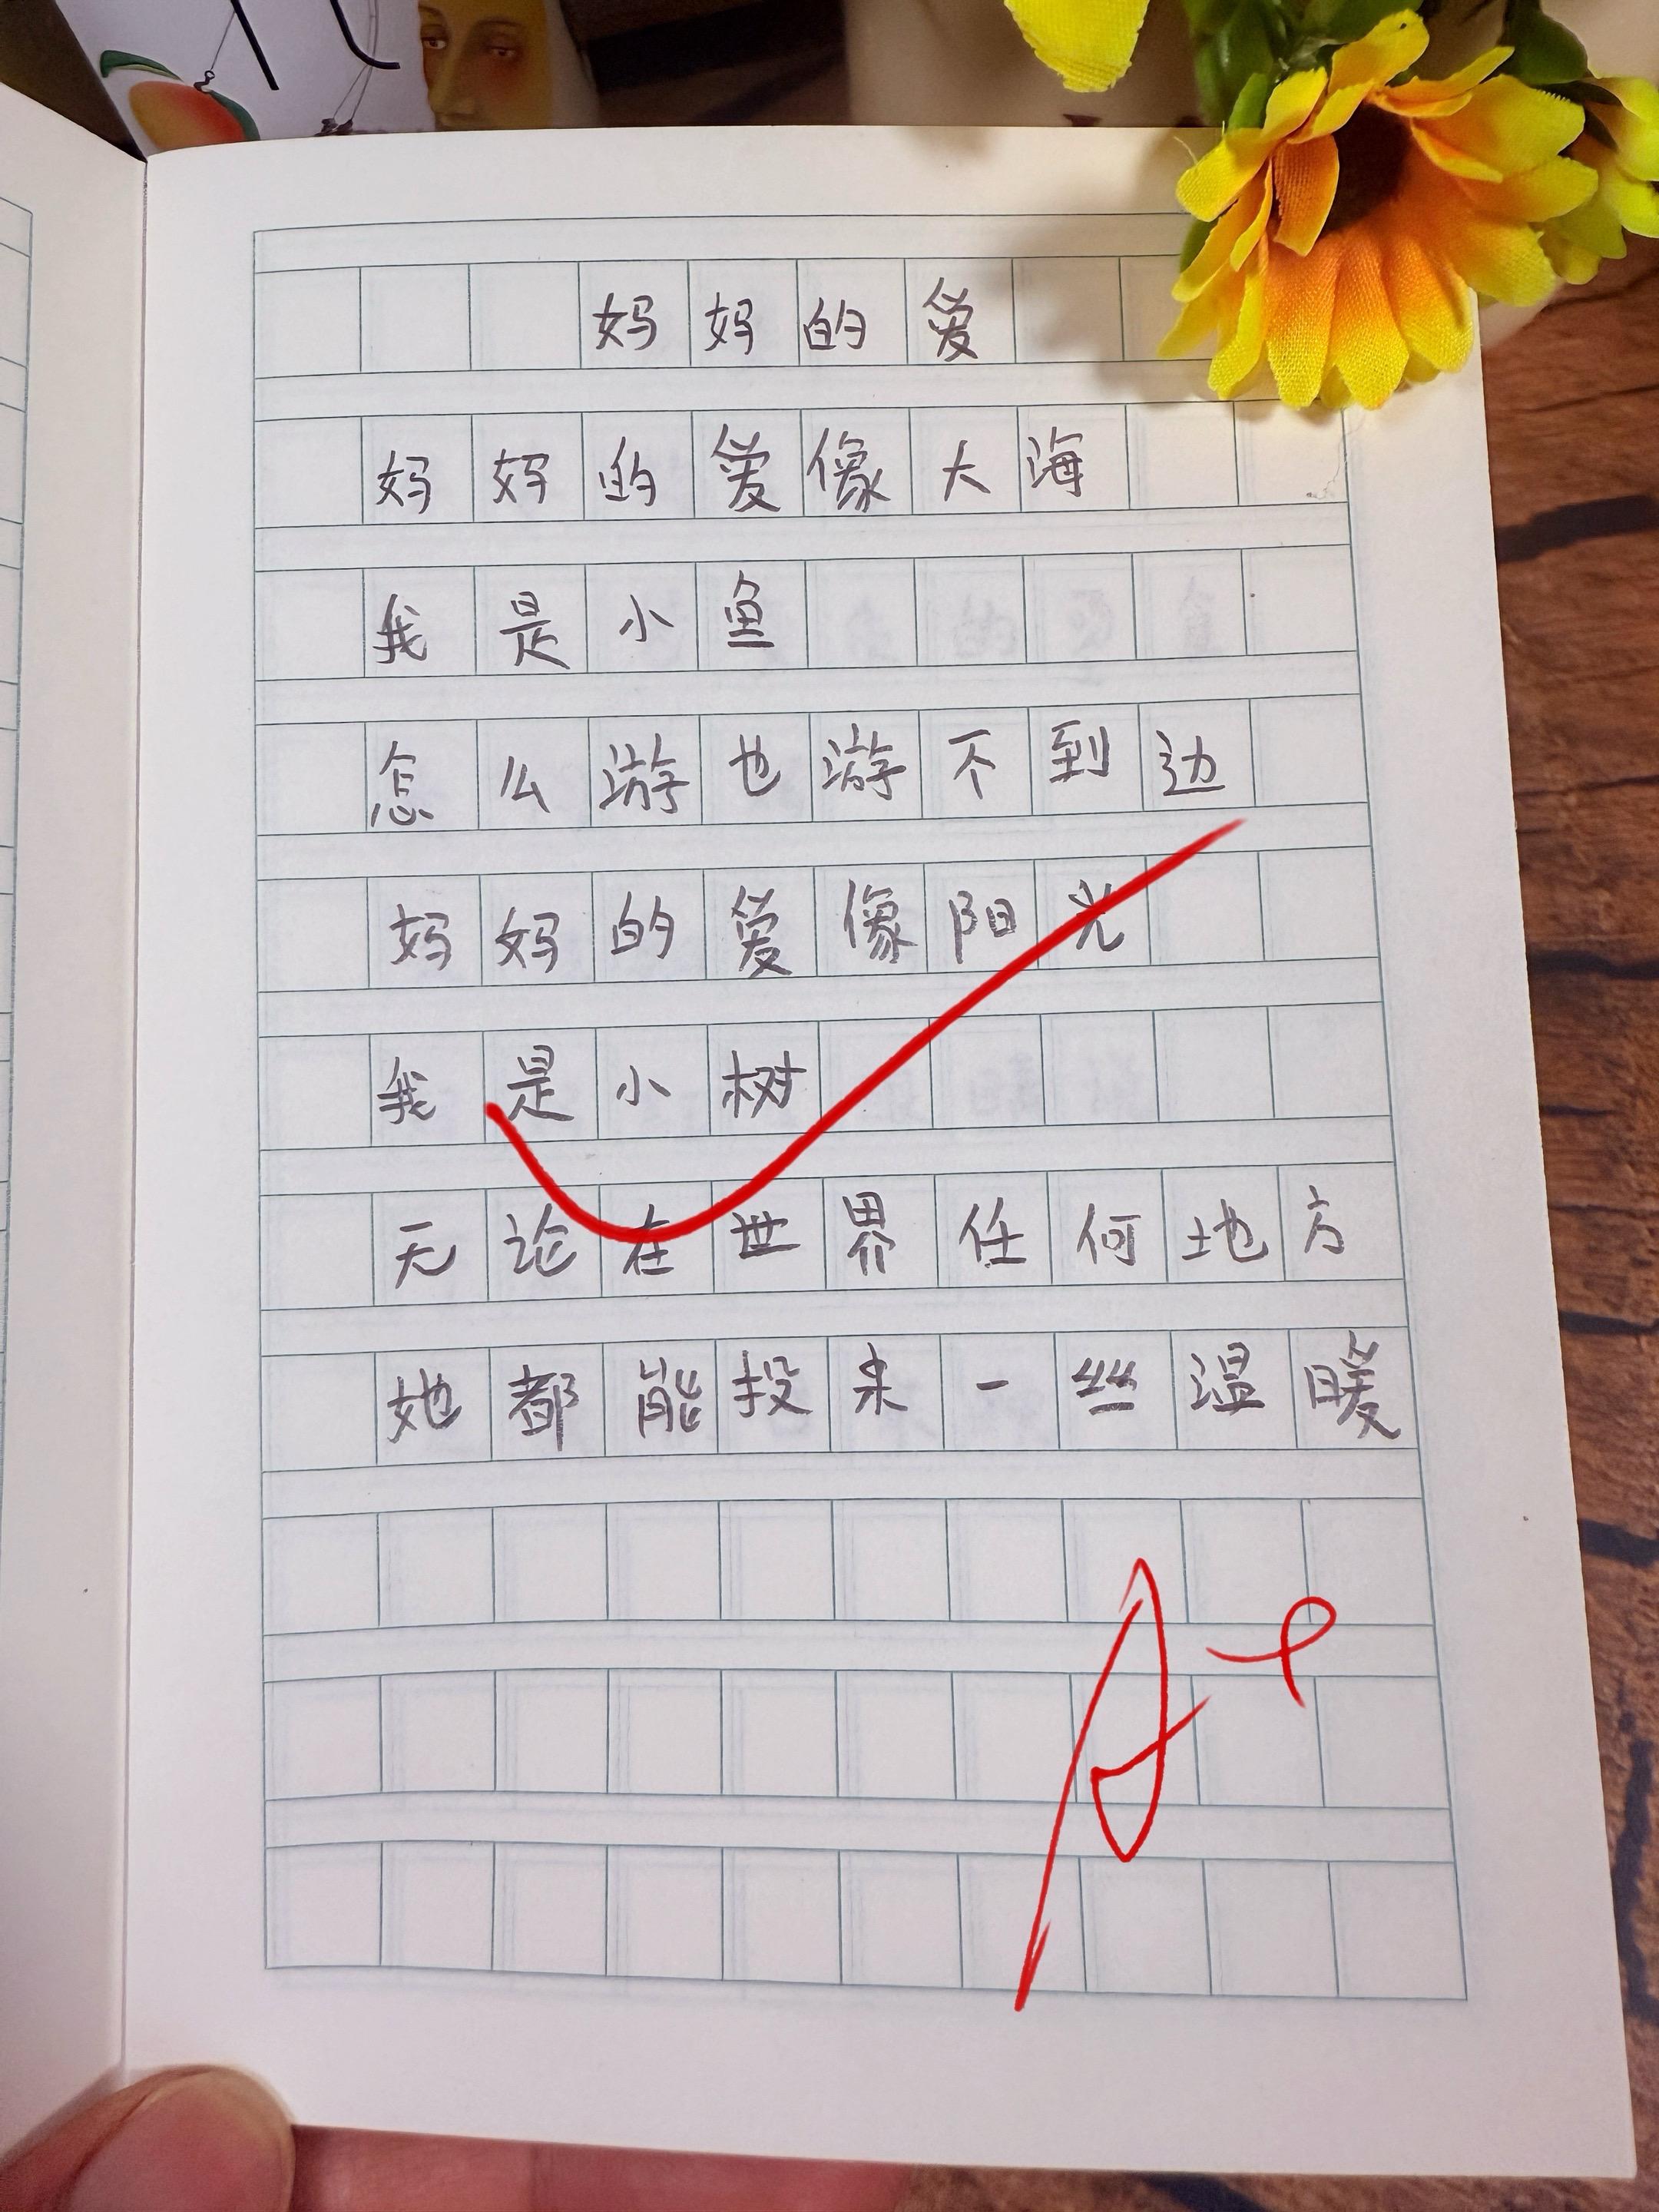 妈妈的爱
妈妈的爱像大海
我是小鱼
怎么游也游不到边
妈妈的爱像阳光
我是小树
无论在世界任何地方
她都能投来一丝温暖
A+